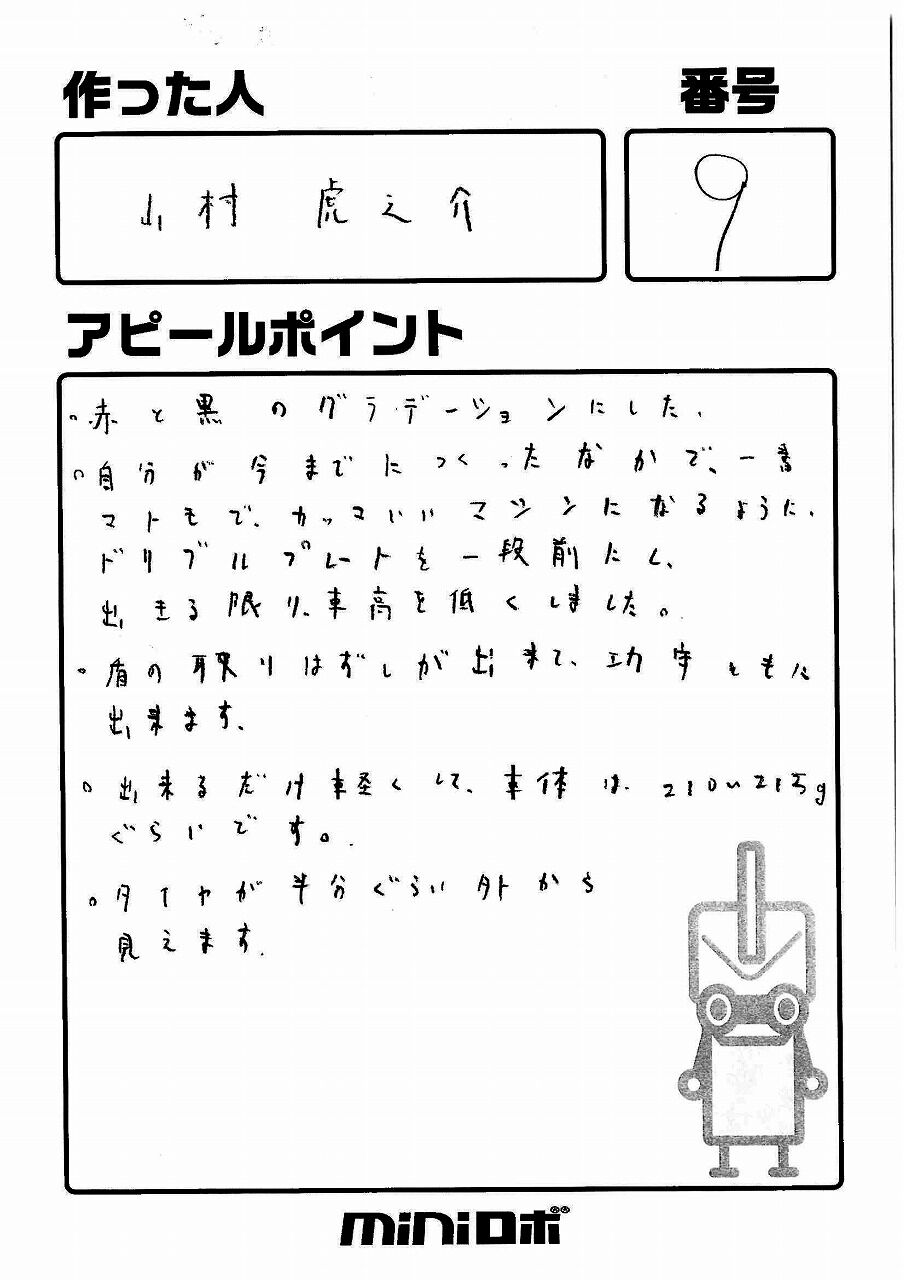 作った人
番号
山村 虎之介
9
アピールポイント
。赤と黒のグラデーションにした、
。自分が今までにつくったなかで、一番
マトモで、カッコいいマシンになるように、
ドリブルプレートを一段前にし、
出きる限り、車高を低くしました。
。盾の取りはずしが出来て、攻守ともに
出来ます、
。出来るだけ軽くして、車体は、210~215g
ぐらいです。
。タイヤが半分ぐらい外から
見えます。
miniロボ